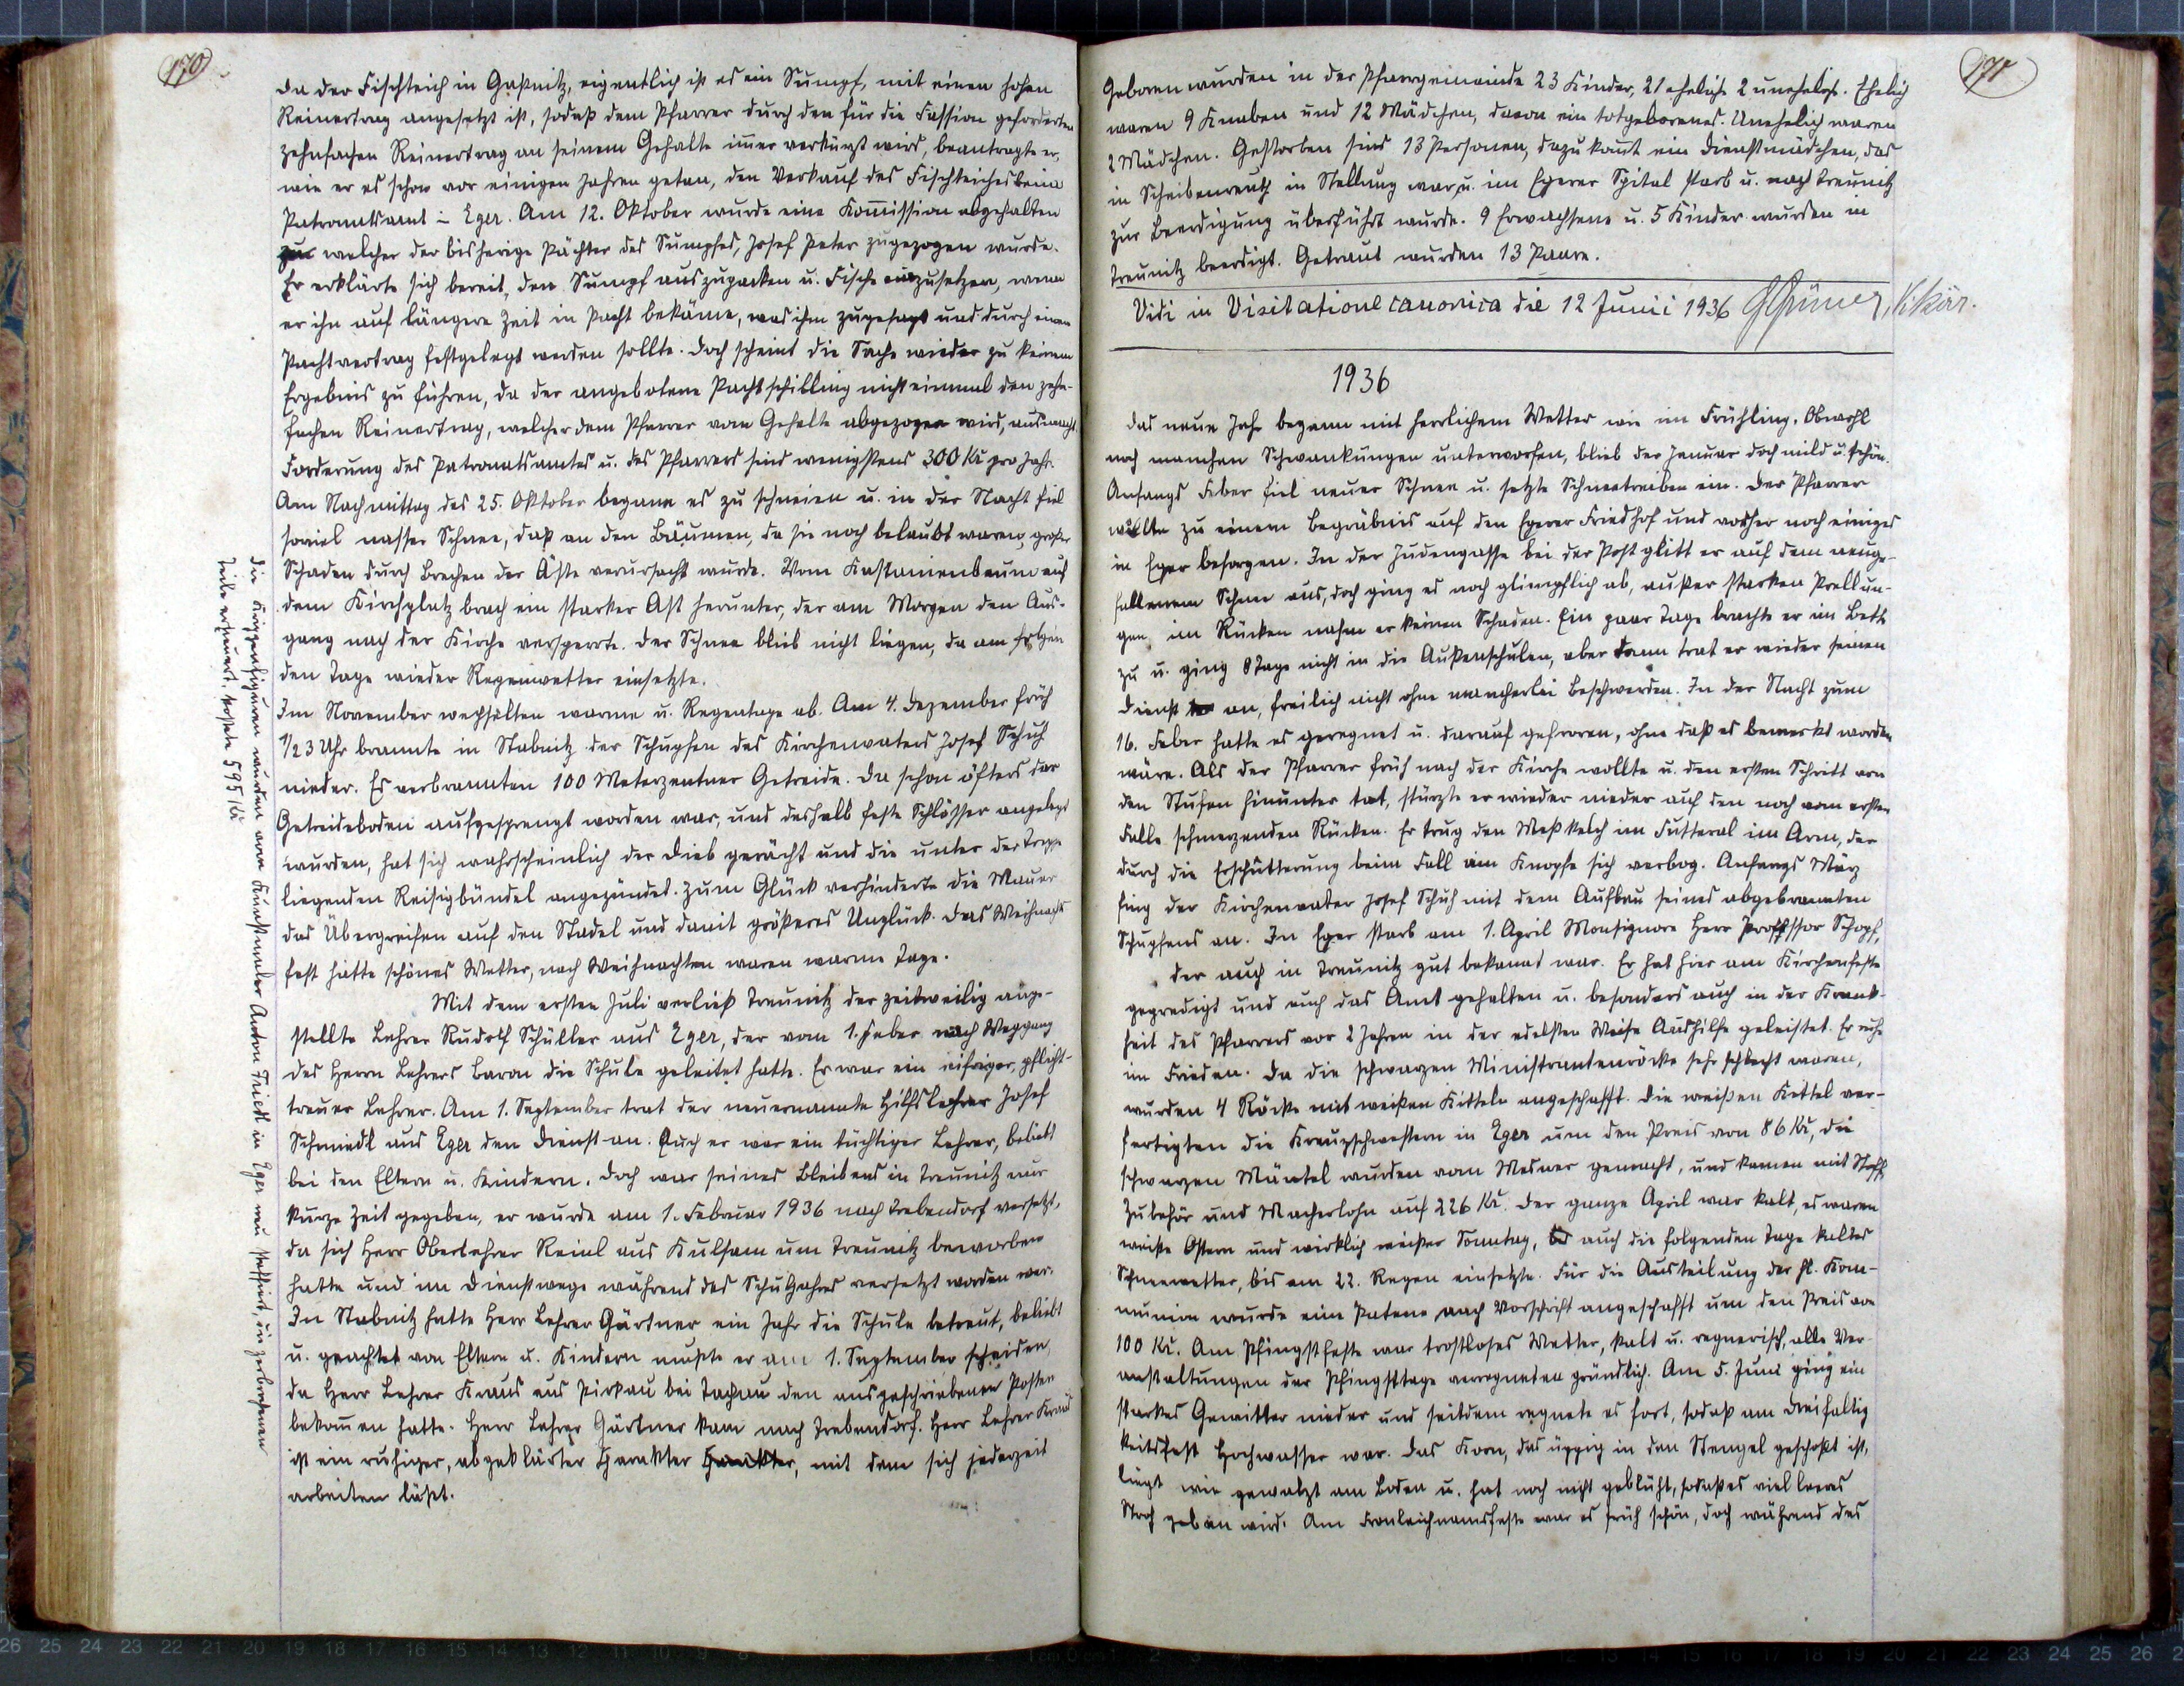 170
da der Fischteich in Gaßnitz, eigentlich ist es ein Sumpf, mit einen hohen
Reinertrag angesetzt ist, sodaß dem Pfarrer durch den für die Fassion geforderten
zehnfachen Reinertrag an seinem Gehalte im̄er verkürzt wird, beantragte er,
wie er es schon vor einigen Jahren getan, den Verkauf des Fischteiches beim
Patronatsamt in Eger. Am 12. Oktober wurde eine Kom̄ission abgehalten
zu welcher der bisherige Pächter des Sumpfes, Josef Peter zugezogen wurde.
Er erklärte sich bereit, den Sumpf auszupacken u. Fische einzusetzen, wenn
er ihn auf längere Zeit in Pacht bekäme, was ihm zugesagt und durch einen
Pachtvertrag festgelegt werden sollte. Doch scheint die Sache wieder zu keinem
Ergebnis zu führen, da der angebotene Pachtschilling nicht einmal den zehn-
fachen Reinertrag, welcher dem Pfarrer vom Gehalte abgezogen wird, ausmacht.
Forderung des Patronatsamtes u. des Pfarrers sind wenigstens 300 Kč pro Jahr.
Am Nachmittag des 25. Oktober begann es zu schneien u. in der Nacht fiel
soviel nasser Schnee, daß an den Bäumen, da sie noch belaubt waren, großer
Schaden durch Brechen der Äste verursacht wurde. Vom Kastanienbaum auf
dem Kirchplatz brach ein starker Ast herunter, der am Morgen den Aus-
gang nach der Kirche versperrte. Der Schnee blieb nicht liegen, da am folgen
den Tage wieder Regenwetter einsetzte.
Im November wechselten warme u. Regentage ab. Am 4. Dezember früh
1/2 3 Uhr brannte in Stabnitz der Schupfen des Kirchenvaters Josef Schuh
nieder. Es verbrannten 100 Meterzentner Getreide. Da schon öfters der
Getreideboden aufgesprengt worden war, und deshalb feste Schlösser angelegt
wurden, hat sich wahrscheinlich der Dieb gerächt und die unter der Treppe
liegenden Reisigbündel angezündet. Zum Glück verhinderte die Mauer
das Übergreifen auf den Stadel und damit größeres Unglück. Das Weihnachts
fest hatte schönes Wetter, nach Weihnachten waren warme Tage.
Mit dem ersten Juli verließ Treunitz der zeitweilig ange-
stellte Lehrer Rudolf Schüller aus Eger, der vom 1. Feber nach Weggang
des Herrn Lehrers Baron die Schule geleitet hatte. Er war ein eifriger, pflicht-
treuer Lehrer. Am 1. September trat der neuernannte Hilfslehrer Josef
Schmiedl aus Eger den Dienst an. Auch er war ein tüchtiger Lehrer, beliebt
bei den Eltern u. Kindern. Doch war seines Bleibens in Treunitz nur
kurze Zeit gegeben, er wurde am 1. Februar 1936 nach Trebendorf versetzt,
da sich Herr Oberlehrer Reinl aus Kulsam um Treunitz beworben
hatte und im Dienstwege während des Schuljahres versetzt worden war.
In Stabnitz hatte Herr Lehrer Gärtner ein Jahr die Schule betreut, beliebt
u. geachtet von Eltern u. Kindern mußte er am 1. September scheiden,
da Herr Lehrer Kraus aus Pirkau bei Tachau den ausgeschriebenen Posten
bekom̄en hatte. Herr Lehrer Gärtner kam nach Trebendorf. Herr Lehrer Kraus
ist ein ruhiger, abgeklärter Charakter, mit dem sich jederzeit
arbeiten läßt.
Die Krippenfiguren wurden vom Kunstmaler Anton Triedl in Eger neu staffiert, die gebrochenen
Teile erneuert, kostete 595 Kč
171
Geboren wurden in der Pfarrgemeinde 23 Kinder, 21 eheliche 2 uneheliche. Ehelich
waren 9 Knaben und 12 Mädchen, davon ein totgeborenes. Unehelich waren
2 Mädchen. Gestorben sind 13 Personen, dazu kom̄t ein Dienstmädchen, das
in Scheibenreuth in Stellung war, u. im Egerer Spital starb u. nach Treunitz
zur Beerdigung überführt wurde. 9 Erwachsene u. 5 Kinder wurden in
Treunitz beerdigt. Getraut wurden 13 Paare.
Vidi in Visitatione canonica die 12 Junii 1936 GGrüner, Vikär.
1936
Das neue Jahr begann mit herrlichem Wetter wie im Frühling. Obwohl
noch manchen Schwankungen unterworfen, blieb der Januar doch mild u. schön.
Anfangs Feber fiel neuer Schnee u. setzte Schneetreiben ein. Der Pfarrer
wollte zu einem Begräbnis auf den Egerer Friedhof und vorher noch einiges
in Eger besorgen. In der Judengasse bei der Post glitt er auf dem neuge-
fallenem Schnee aus, doch ging es noch glimpflich ab, außer starken Prellun-
gen im Rücken nahm er keinen Schaden. Ein paar Tage brachte er im Bett
zu u. ging 8 Tage nicht in die Außenschulen, aber dann trat er wieder seinen
Dienst an, freilich nicht ohne mancherlei Beschwerden. In der Nacht zum
16. Feber hatte es geregnet u. darauf gefroren, ohne daß es bemerkt worden
wäre. Als der Pfarrer früh nach der Kirche wollte u. den ersten Schritt von
den Stufen hinunter tat, stürzte er wieder nieder auf den noch vom ersten
Falle schmerzenden Rücken. Er trug den Meßkelch im Futteral im Arm, der
durch die Erschütterung beim Fall am Knopfe sich verbog. Anfangs März
fing der Kirchenvater Josef Schuh mit dem Aufbau seines abgebrannten
Schupfens an. In Eger starb am 1. April Monsignore Herr Professor Schopf,
der auch in Treunitz gut bekannt war. Er hat hier am Kirchenfeste
gepredigt und auch das Amt gehalten u. besonders auch in der Krank-
heit des Pfarrers vor 2 Jahren in der edelsten Weise Aushilfe geleistet. Er ruhe
im Frieden. Da die schwarzen Ministrantenröcke sehr schlecht waren,
wurden 4 Röcke mit weißen Kitteln angeschafft. Die weißen Kittel ver-
fertigten die Kreuzschwestern in Eger um den Preis von 86 Kč, die
schwarzen Mäntel wurden vom Mesner gemacht, und kamen mit Stoff
Zubehör und Macherlohn auf 226 Kč. Der ganze April war kalt, es waren
weiße Ostern und wirklich weißer Sonntag, auch die folgenden Tage kaltes
Schneewetter, bis am 22. Regen einsetzte. Für die Austeilung der hl. Kom-
munion wurde eine Patene nach Vorschrift angeschafft um den Preis von
100 Kč. Am Pfingstfeste war trostloses Wetter, kalt u. regnerisch, alle Ver-
anstaltungen der Pfingsttage verregneten gründlich. Am 5. Juni ging ein
starkes Gewitter nieder und seitdem regnete es fort, sodaß am Dreifaltig
keitsfest Hochwasser war. Das Korn, das üppig in den Stengel geschoßt ist,
liegt wie gewalzt am Boden u. hat noch nicht geblüht, sodaß es viel leeres
Stroh geben wird. Am Fronleichnamsfeste war es früh schön, doch während des